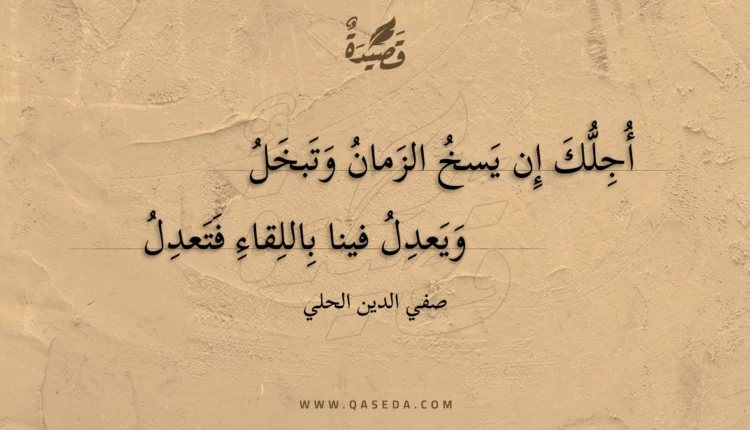 قَصِيدَةٌ
أُجِلُّكَ إِن يَسخُ الزَمانُ وَتَبخَلُ
وَيَعدِلُ فينا بِاللِقاءِ فَتَعدِلُ
صفي الدين الحلي
WWW.QASEDA.COM